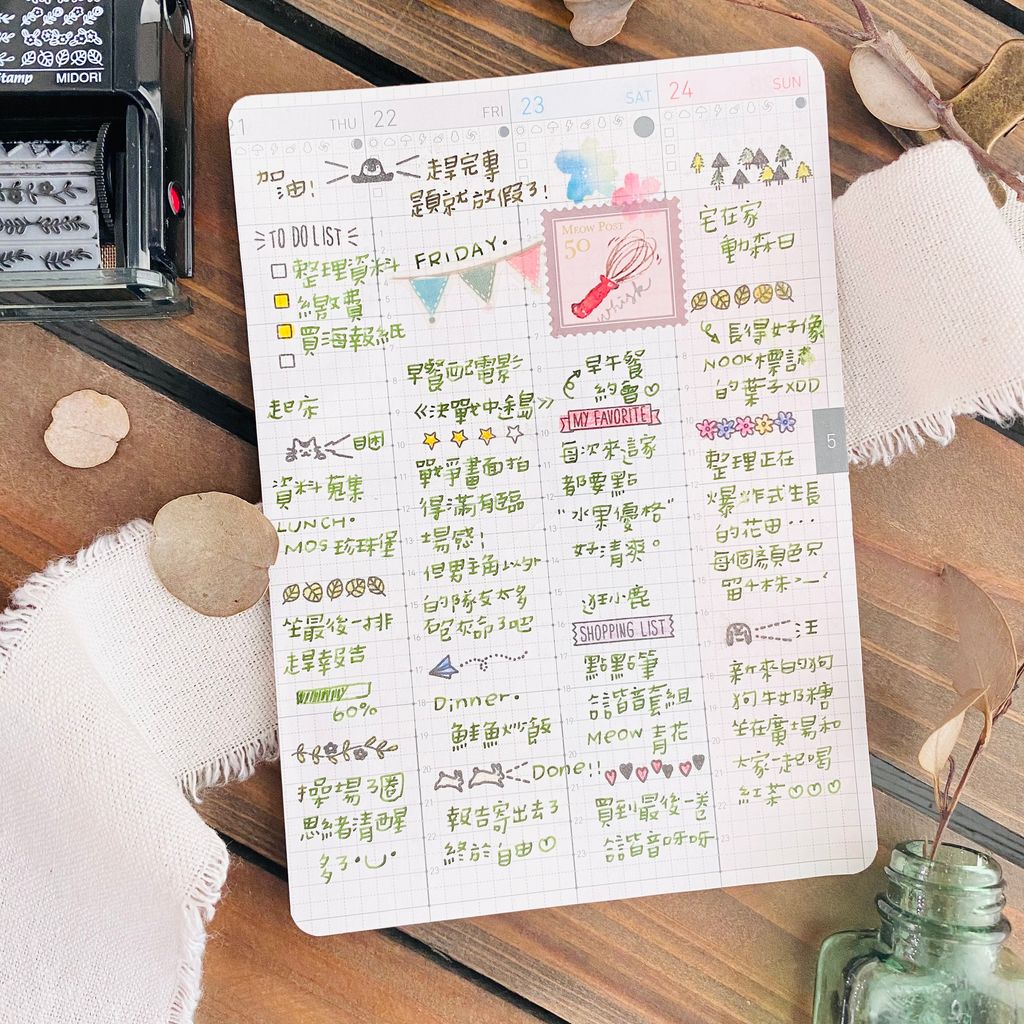 stamp
MIDORI
21 THU
22 FRI
23 SAT
24 SUN
加油!
趕完專
題就放假了!
TO DO LIST
整理資料
繳費
買海報紙
起床
睏
資料蒐集
LUNCH.
MOS 珍珠堡
坐最後一排
趕報告
60%
操場3圈
思緒清醒
多了
FRIDAY.
早餐配電影
《決戰中途島》
戰爭畫面拍
得滿有臨
場感!
但男主角以外
的隊友太多
砲灰命了吧
Dinner.
鮭魚炒飯
Done!!
報告寄出去了
終於自由♡
MEOW POST
50
whisk
早午餐
約會♡
MY FAVORITE
每次來這家
都要點
"水果優格"
好清爽。
逛小鹿
SHOPPING LIST
點點筆
諧音套組
MEOW 青花
買到最後一卷
諧音呀呀
宅在家
動森日
長得好像
NOOK標誌
的葉子XDD
5
整理正在
爆炸式生長
的花田...
每個顏色只
留4株>-<
汪
新來的狗
狗牛奶糖
坐在廣場和
大家一起喝
紅茶♡♡♡